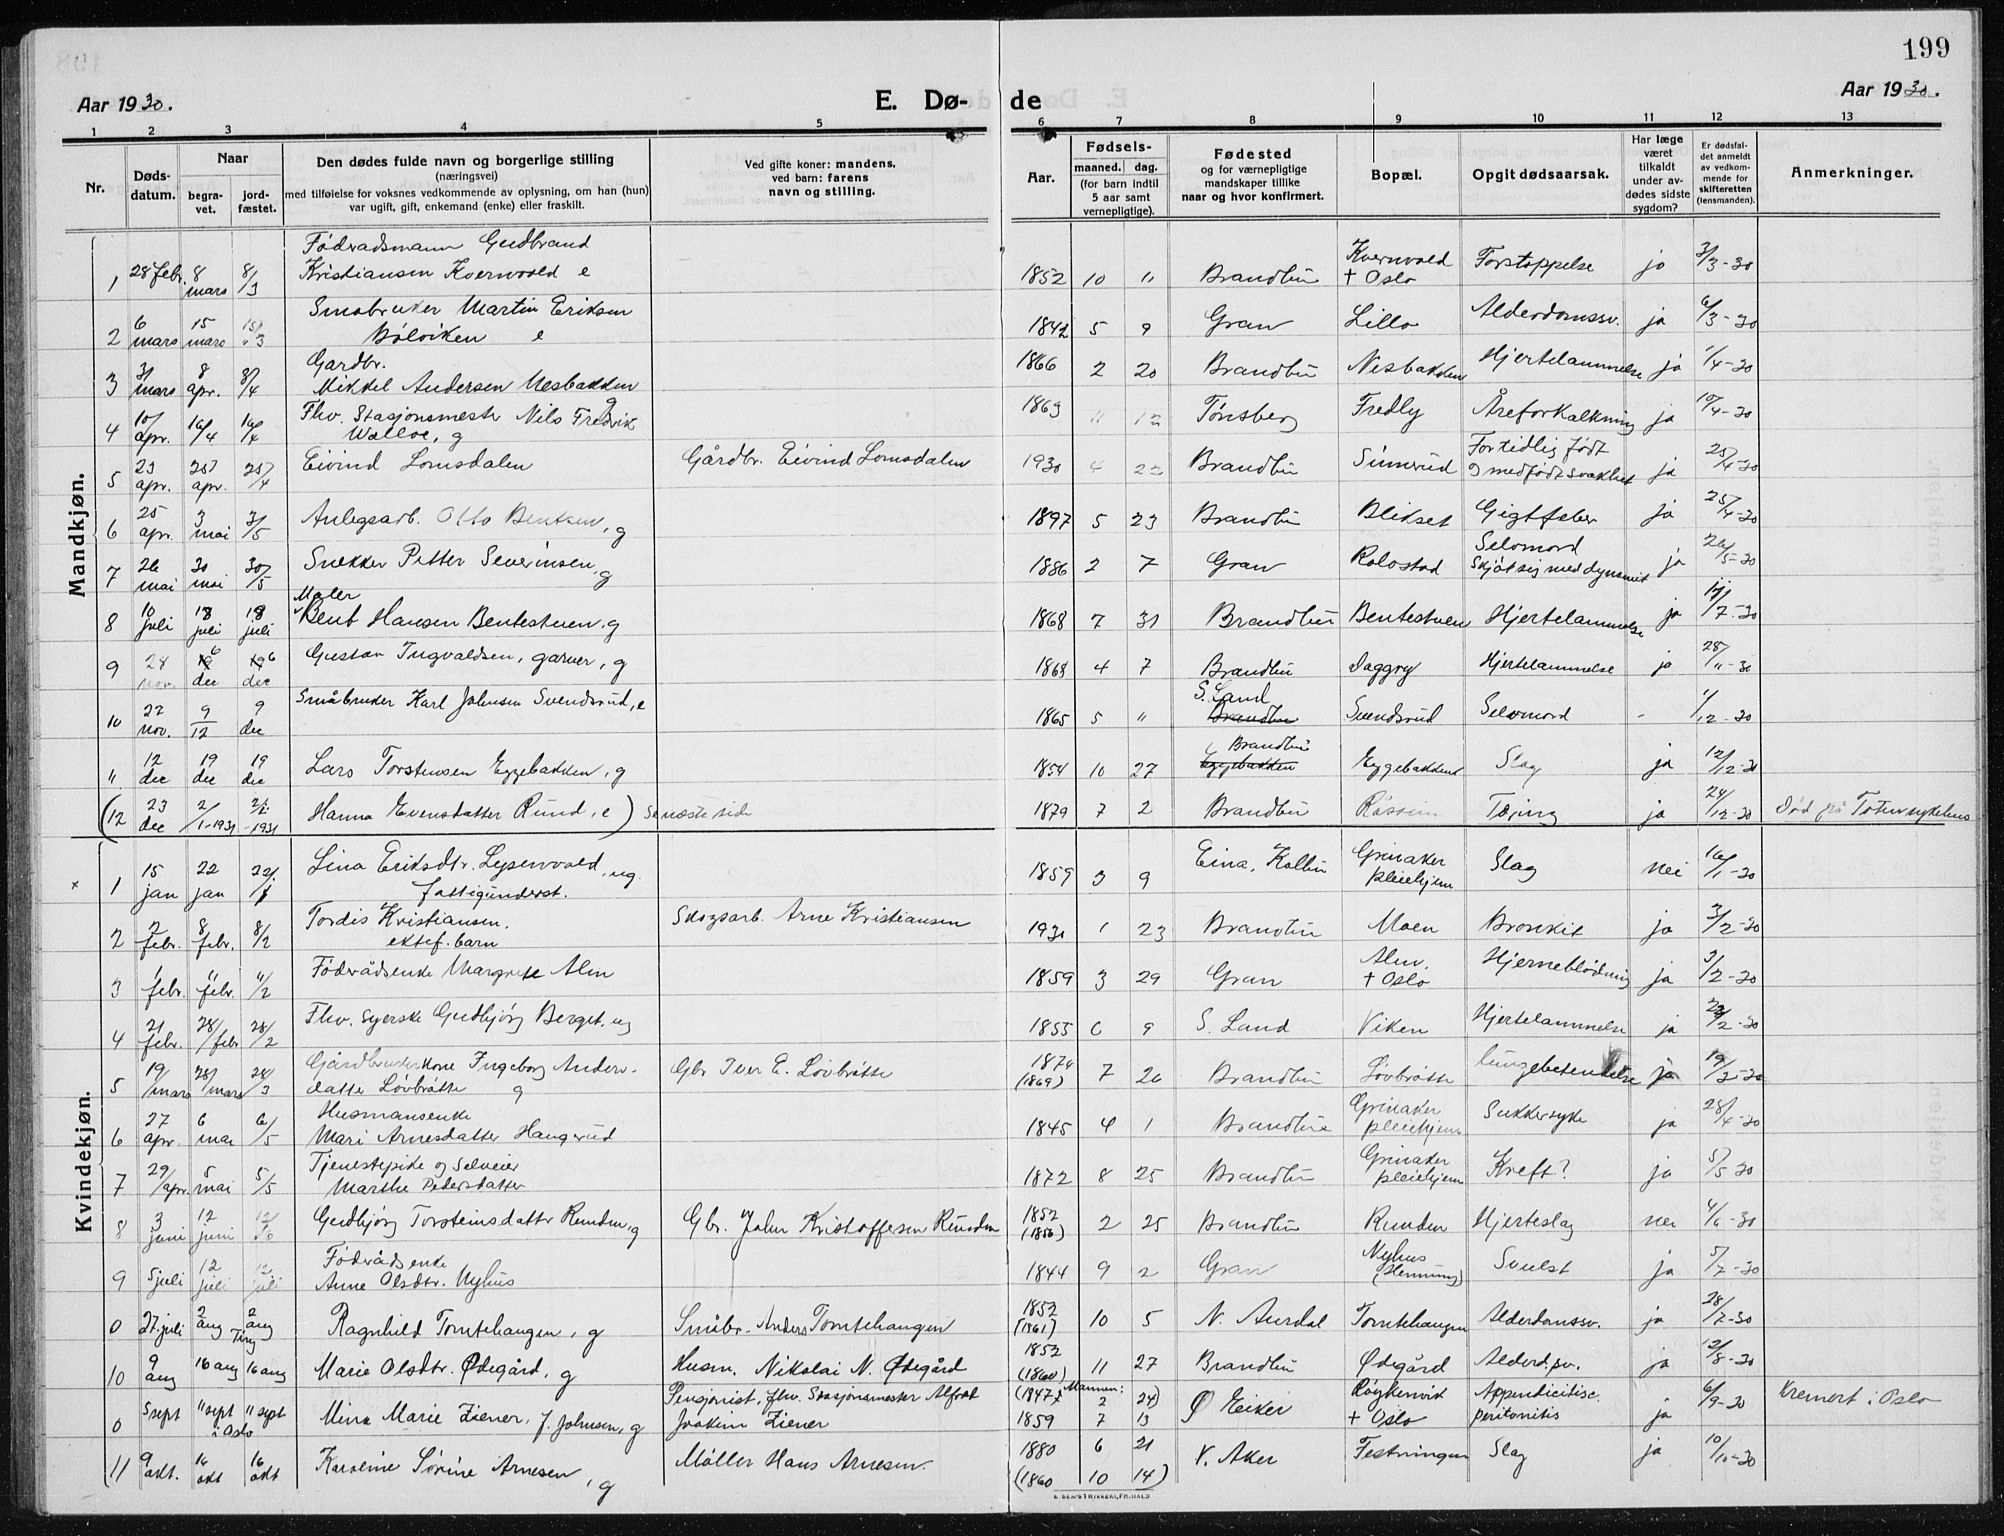 199
Aar 1930.
E. Dø- de
Aar 1930.
1 2 3 4 5 6 7 8 9 10 11 12 13
Nr.
Døds-
datum.
Naar
begra-
vet.
jord-
fæstet.
Den dødes fulde navn og borgerlige stilling
(næringsvei)
med tilføielse for voksnes vedkommende av oplysning, om han (hun)
var ugift, gift, enkemand (enke) eller fraskilt.
Ved gifte koner: mandens,
ved barn: farens
navn og stilling.
Aar.
Fødsels-
maaned. dag.
(for barn indtil
5 aar samt
vernepligtige).
Fødested
og for værnepligtige
mandskaper tillike
naar og hvor konfirmert.
Bopæl.
Opgit dødsaarsak.
Har læge
været
tilkaldt
under av-
dødes sidste
sygdom?
Er dødsfal-
det anmeldt
av vedkom-
mende for
skifteretten
(lensmanden).
Anmerkninger.
Mandkjøn.
Fødradsmann Gudbrand
1 28 febr. 8 mars 8/3 Kristiansen Kvernvold e 1852 10 11 Brandbu Kvernvold + Oslo Forstoppelse ja 3/3-30
Smabruker Martin Eriksen
2 6 mars 15 mars 15/3 Bølviken e 1842 5 9 Gran Lillo Alderdomssv. ja 6/3-30
Gardbr.
3 31 mars 8 apr. 8/4 Mikkel Andersen Nesbakken g 1866 2 20 Brandbu Nesbakken Hjertelammelse ja 1/4-30
4 10/apr. 16/4 16/4 Fhv. Stasjonsmester Nils Fredrik
Walloe, g 1863 11 12 Tønsberg Fredly Åreforkalkning ja 10/4-30
5 23 apr. 25 apr. 25/4 Eivind Lomsdalen Gårdbr. Eivind Lomsdalen 1930 4 22 Brandbu Sinnerud Fortidlig født
og medfødt svakhet ja 25/4-30
6 25 apr. 3 mai 3/5 Anlegsarb. Otto Bentsen, g 1897 5 23 Brandbu Blikset Gigtfeber ja 25/4-30
7 26 mai 30 mai 30/5 Snekker Petter Severinsen, g 1886 2 7 Gran Rolostad Selvmord
Skjøt sig med dynamit ja 26/5-30
Maler
8 10 juli 18 juli 18 juli Bent Hansen Bentestuen, g 1868 7 31 Brandbu Bentestuen Hjertelammelse ja 11/7-30
9 28 nov. 6 dec 6 dec Gustav Ingvaldsen, garver, g 1868 4 7 Brandbu Daggry Hjertelammelse ja 28/11-30
10 22 nov. 9/12 9 dec Småbruker Karl Johnsen Svendsrud, e 1865 5 11 S. Land Brandbu Svendsrud Selvmord - 1/12-30
11 12 dec 19 dec 19 dec Lars Torstensen Eggebakken, g 1854 10 27 Brandbu Eggebakken Eggebakken Slag ja 12/12-30
(12 23 dec 2/1-1931 2/1-1931 Hanna Evensdatter Rund, e) Se næste side 1879 7 2 Brandbu Tæring ja 24/12-30 Død på Toten sykehus
Kvindekjøn.
x 1 15 jan 22 jan 22/1 Lina Eriksdtr. Lysenvold, ug.
fattigunderst. 1859 3 9 Eina, Kolbu Grinaker pleiehjem Slag nei 16/1-30
2 2 febr. 8 febr. 8/2 Tordis Kristiansen,
ektef. barn Skogsarb. Arne Kristiansen 1930 1 23 Brandbu Moen Bronkit ja 3/2-30
3 1 febr. 11 febr. 11/2 Fødrådsenke Margrete Alm 1859 3 29 Gran Alm + Oslo Hjerneblødning ja 3/2-30
4 21 febr. 28/febr 28/2 Fhv. syerske Gudbjørg Berget, ug 1855 6 9 S. Land Viken Hjertelammelse ja 22/2-30
5 19/mars 28/mars 28/3 Gårdbrukerskone Ingeborg Anders-
datter Løvbråtte g Gbr. Iver E. Løvbråtte 1874 (1869) 7 26 Brandbu Løvbråtte lungebetendelse ja 19/3-30
Husmansenke
6 27 apr. 6 mai 6/5 Mari Arnesdatter Haugerud 1845 4 1 Brandbu Grinaker pleiehjem Sukkersyke ja 28/4-30
Tjenestepike og selveier
7 29/apr. 5 mai 5/5 Marthe Pedersdatter 1872 8 25 Brandbu Grinaker pleiehjem Kreft? ja 5/5 30
8 3 juni 12 juni 12/6 Gudbjørg Torsteinsdatter Runden, g Gbr. John Kristoffersen Runden 1852 (1856) 2 25 Brandbu Runden Hjerteslag nei 4/6-30
Fødrådsenke
9 5 juli 12 juli 12 juli Anne Olsdtr. Nyhus 1844 9 2 Gran Nyhus (Henning) Svulst ja 5/7-30
0 27. juli 2 aug 2 aug Ting Ragnhild Tomtehaugen, g Småbr. Anders Tomtehaugen 1852 (1861) 10 5 N. Aurdal Tomtehaugen Alderdomssv. ja 28/7-30
10 9 aug 16 aug 16 aug Marie Olsdtr. Ødegård, g Husm. Nikolai N. Ødegård 1852 (1860) 11 27 Brandbu Ødegård Alderd.sv. ja 12/8-30
0 5 sept 11 sept i Oslo 11 sept Mina Marie Ziener, f. Johnsen, g Pensjonist, fhv. Stasjonsmester Alfred
Joakim Ziener (1847 Mannen: 2 24) 1859 7 13 Ø Eiker Røykenvik + Oslo Appendicitisc. peritonitis ja 6/9-30 Kremert i Oslo
11 9 okt. 16 okt 16 okt Karoline Sørine Arnesen, g Møller Hans Arnesen. 1880 6 21 (1860 10 14) V. Aker Festningen Slag ja 10/10-30